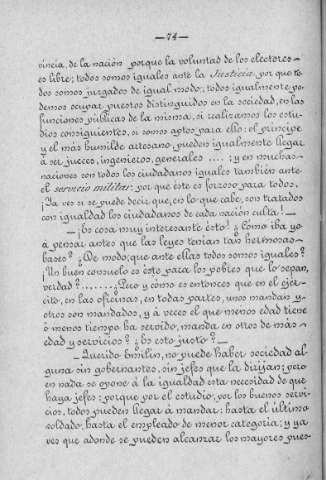 —74—
vincia, de la nación porque la voluntad de los electores
es libre; todos somos iguales ante la Justicia, por que to-
dos somos juzgados de igual modo; todos igualmente po-
demos ocupar puestos distinguidos en la sociedad, en las
funciones públicas de la misma, si realizamos los estu-
dios consiguientes, si somos aptos para ello: el príncipe
y el más humilde artesano, pueden igualmente llegar
á ser jueces, ingenieros, generales ....; y en muchas
naciones con todos los ciudadanos iguales también ante
el servicio militar: por que éste es forzoso para todos.
¡Ya ves si se puede decir que, en lo que cabe, son tratados
con igualdad los ciudadanos de cada nación culta! —
— ¡Es cosa muy interesante ésto! ¿Cómo iba yo
á pensar antes que las leyes tenían tan hermosas
bases? ¿De modo, que ante ellas todos somos iguales?
¡Un buen consuelo es éste para los pobres que lo sepan,
verdad? ....... ¿Pero y cómo es entonces que en el ejér-
cito, en las oficinas, en todas partes, unos mandan y
otros son mandados, y á veces el que menos edad tiene
ó menos tiempo ha servido, manda en otros de más
edad y servicios? ¿Es esto justo? —
— Querido Emilín, no puede haber sociedad al-
guna sin gobernantes, sin jefes que la dirijan; pero
en nada se opone á la igualdad esta necesidad de que
haya jefes: porque por el estudio, por los buenos servi-
cios, todos pueden llegar á mandar: hasta el último
soldado, hasta el empleado de menor categoría; y ya
ves que adonde se pueden alcanzar los mayores pues-